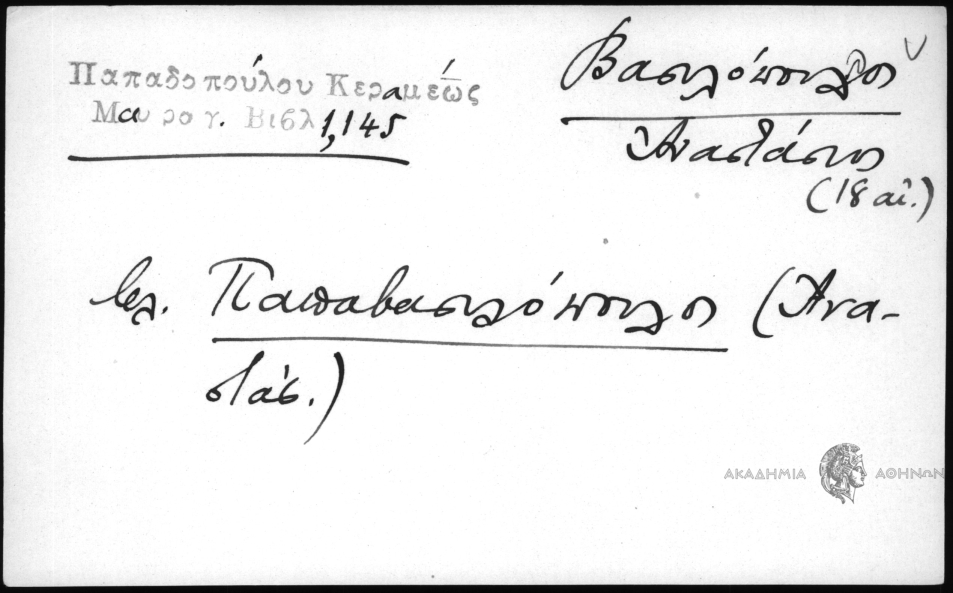 Παπαδοπούλου Κεραμέως
Μαυρογ. Βιβλ 1,145
Βασιλόπουλος
Ἀναστάσιος
(18 αἰ.)
βλ. Παπαβασιλόπουλος (Ἀνα-
στάσ.)
ΑΚΑΔΗΜΙΑ ΑΘΗΝΩΝ